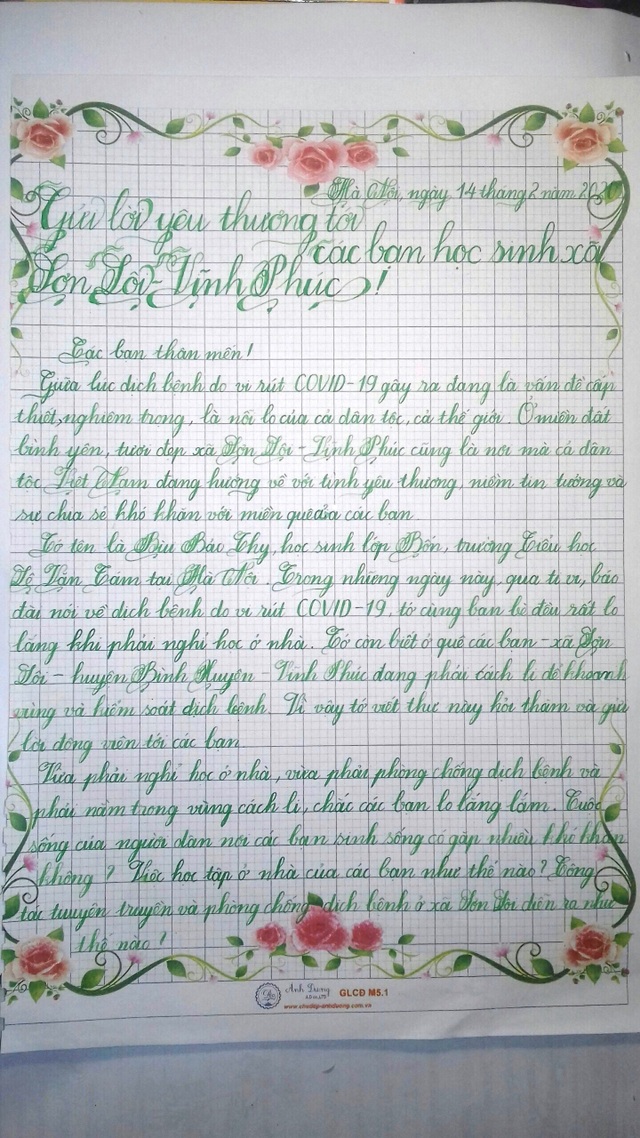 Hà Nội, ngày 14 tháng 2 năm 2020
Gửi lời yêu thương tới
các bạn học sinh xã
Sơn Lôi - Vĩnh Phúc !
Các bạn thân mến!
Giữa lúc dịch bệnh do vi rút COVID-19 gây ra đang là vấn đề cấp
thiết, nghiêm trọng, là nỗi lo của cả dân tộc, cả thế giới. Ở miền đất
bình yên, tươi đẹp xã Sơn Lôi - Vĩnh Phúc cũng là nơi mà cả dân
tộc Việt Nam đang hướng về với tình yêu thương, niềm tin tưởng và
sự chia sẻ khó khăn với miền quê của các bạn
Tớ tên là Bùi Bảo Thy, học sinh lớp Bốn, trường Tiểu học
Lê Văn Tám tại Hà Nội. Trong những ngày này, qua ti vi, báo
đài nói về dịch bệnh do vi rút COVID-19, tớ cùng bạn bè đều rất lo
lắng khi phải nghỉ học ở nhà. Tớ còn biết ở quê các bạn - xã Sơn
Lôi - huyện Bình Xuyên - Vĩnh Phúc đang phải cách li để khoanh
vùng và kiểm soát dịch bệnh. Vì vậy tớ viết thư này hỏi thăm và gửi
lời động viên tới các bạn
Vừa phải nghỉ học ở nhà, vừa phải phòng chống dịch bệnh và
phải nằm trong vùng cách li, chắc các bạn lo lắng lắm. Cuộc
sống của người dân nơi các bạn sinh sống có gặp nhiều khó khăn
không ? Việc học tập ở nhà của các bạn như thế nào? Công
tác tuyên truyền và phòng chống dịch bệnh ở xã Sơn Lôi diễn ra như
thế nào ?
Ánh Dương
GLCĐ M5.1